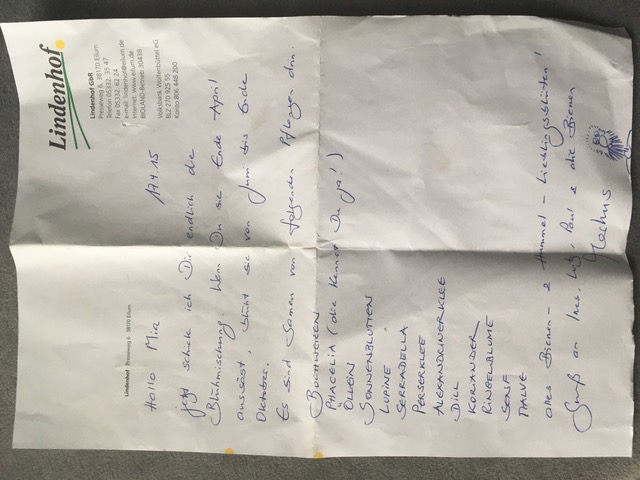 Lindenhof
Lindenhof GbR
Presseweg 6, 38170 Eilum
Telefon 05332. 35 47
Fax 05332. 62 24
e-mail: lindenhof@eilum.de
Internet: www.eilum.de
BIOLAND-Betrieb 30438
Volksbank Wolfenbüttel eG
BLZ 270 925 55
Konto 806 448 200
Lindenhof Presseweg 6 38170 Eilum
Hallo Mia 17.4.15
jetzt schick ich Dir endlich die
Blühmischung. Wenn Du sie Ende April
aussäst, blüht sie von Juni bis Ende
Oktober.
Es sind Samen von folgenden Pflanzen drin:
BUCHWEIZEN
PHACELIA (die kennst Du ja!)
ÖLLEIN
SONNENBLUMEN
LUPINE
SERRADELLA
PERSERKLEE
ALEXANDRINERKLEE
DILL
KORIANDER
RINGELBLUME
SENF
MALVE
alles Bienen- & Hummel-Lieblingsblüten!
Gruß an Ines, Lutz, Paul & die Bienen